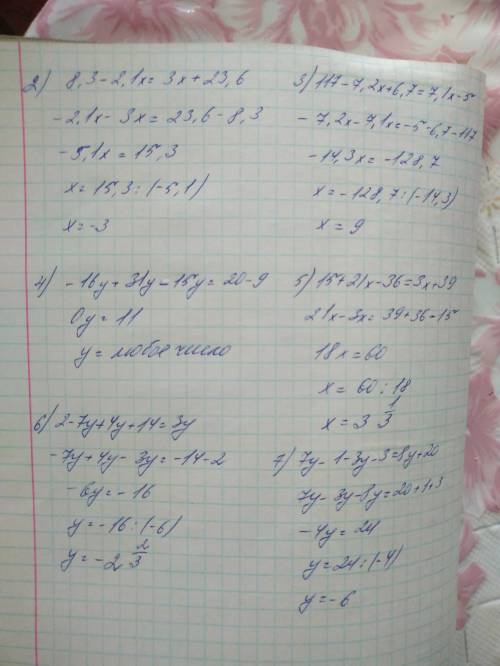 2) 8,3-2,1x=3x+23,6
-2,1x-3x=23,6-8,3
-5,1x=15,3
x=15,3:(-5,1)
x=-3
3) 117-7,2x+6,7=7,1x-5
-7,2x-7,1x=-5-6,7-117
-14,3x=-128,7
x=-128,7:(-14,3)
x=9
4) -16y+31y-15y=20-9
0y=11
y=любое число
5) 15+21x-36=3x+39
21x-3x=39+36-15
18x=60
x=60:18
x=3 1/3
6) 2-7y+4y+14=3y
-7y+4y-3y=-14-2
-6y=-16
y=-16:(-6)
y=-2 2/3
7) 7y-1-3y-3=8y+20
7y-3y-8y=20+1+3
-4y=24
y=24:(-4)
y=-6